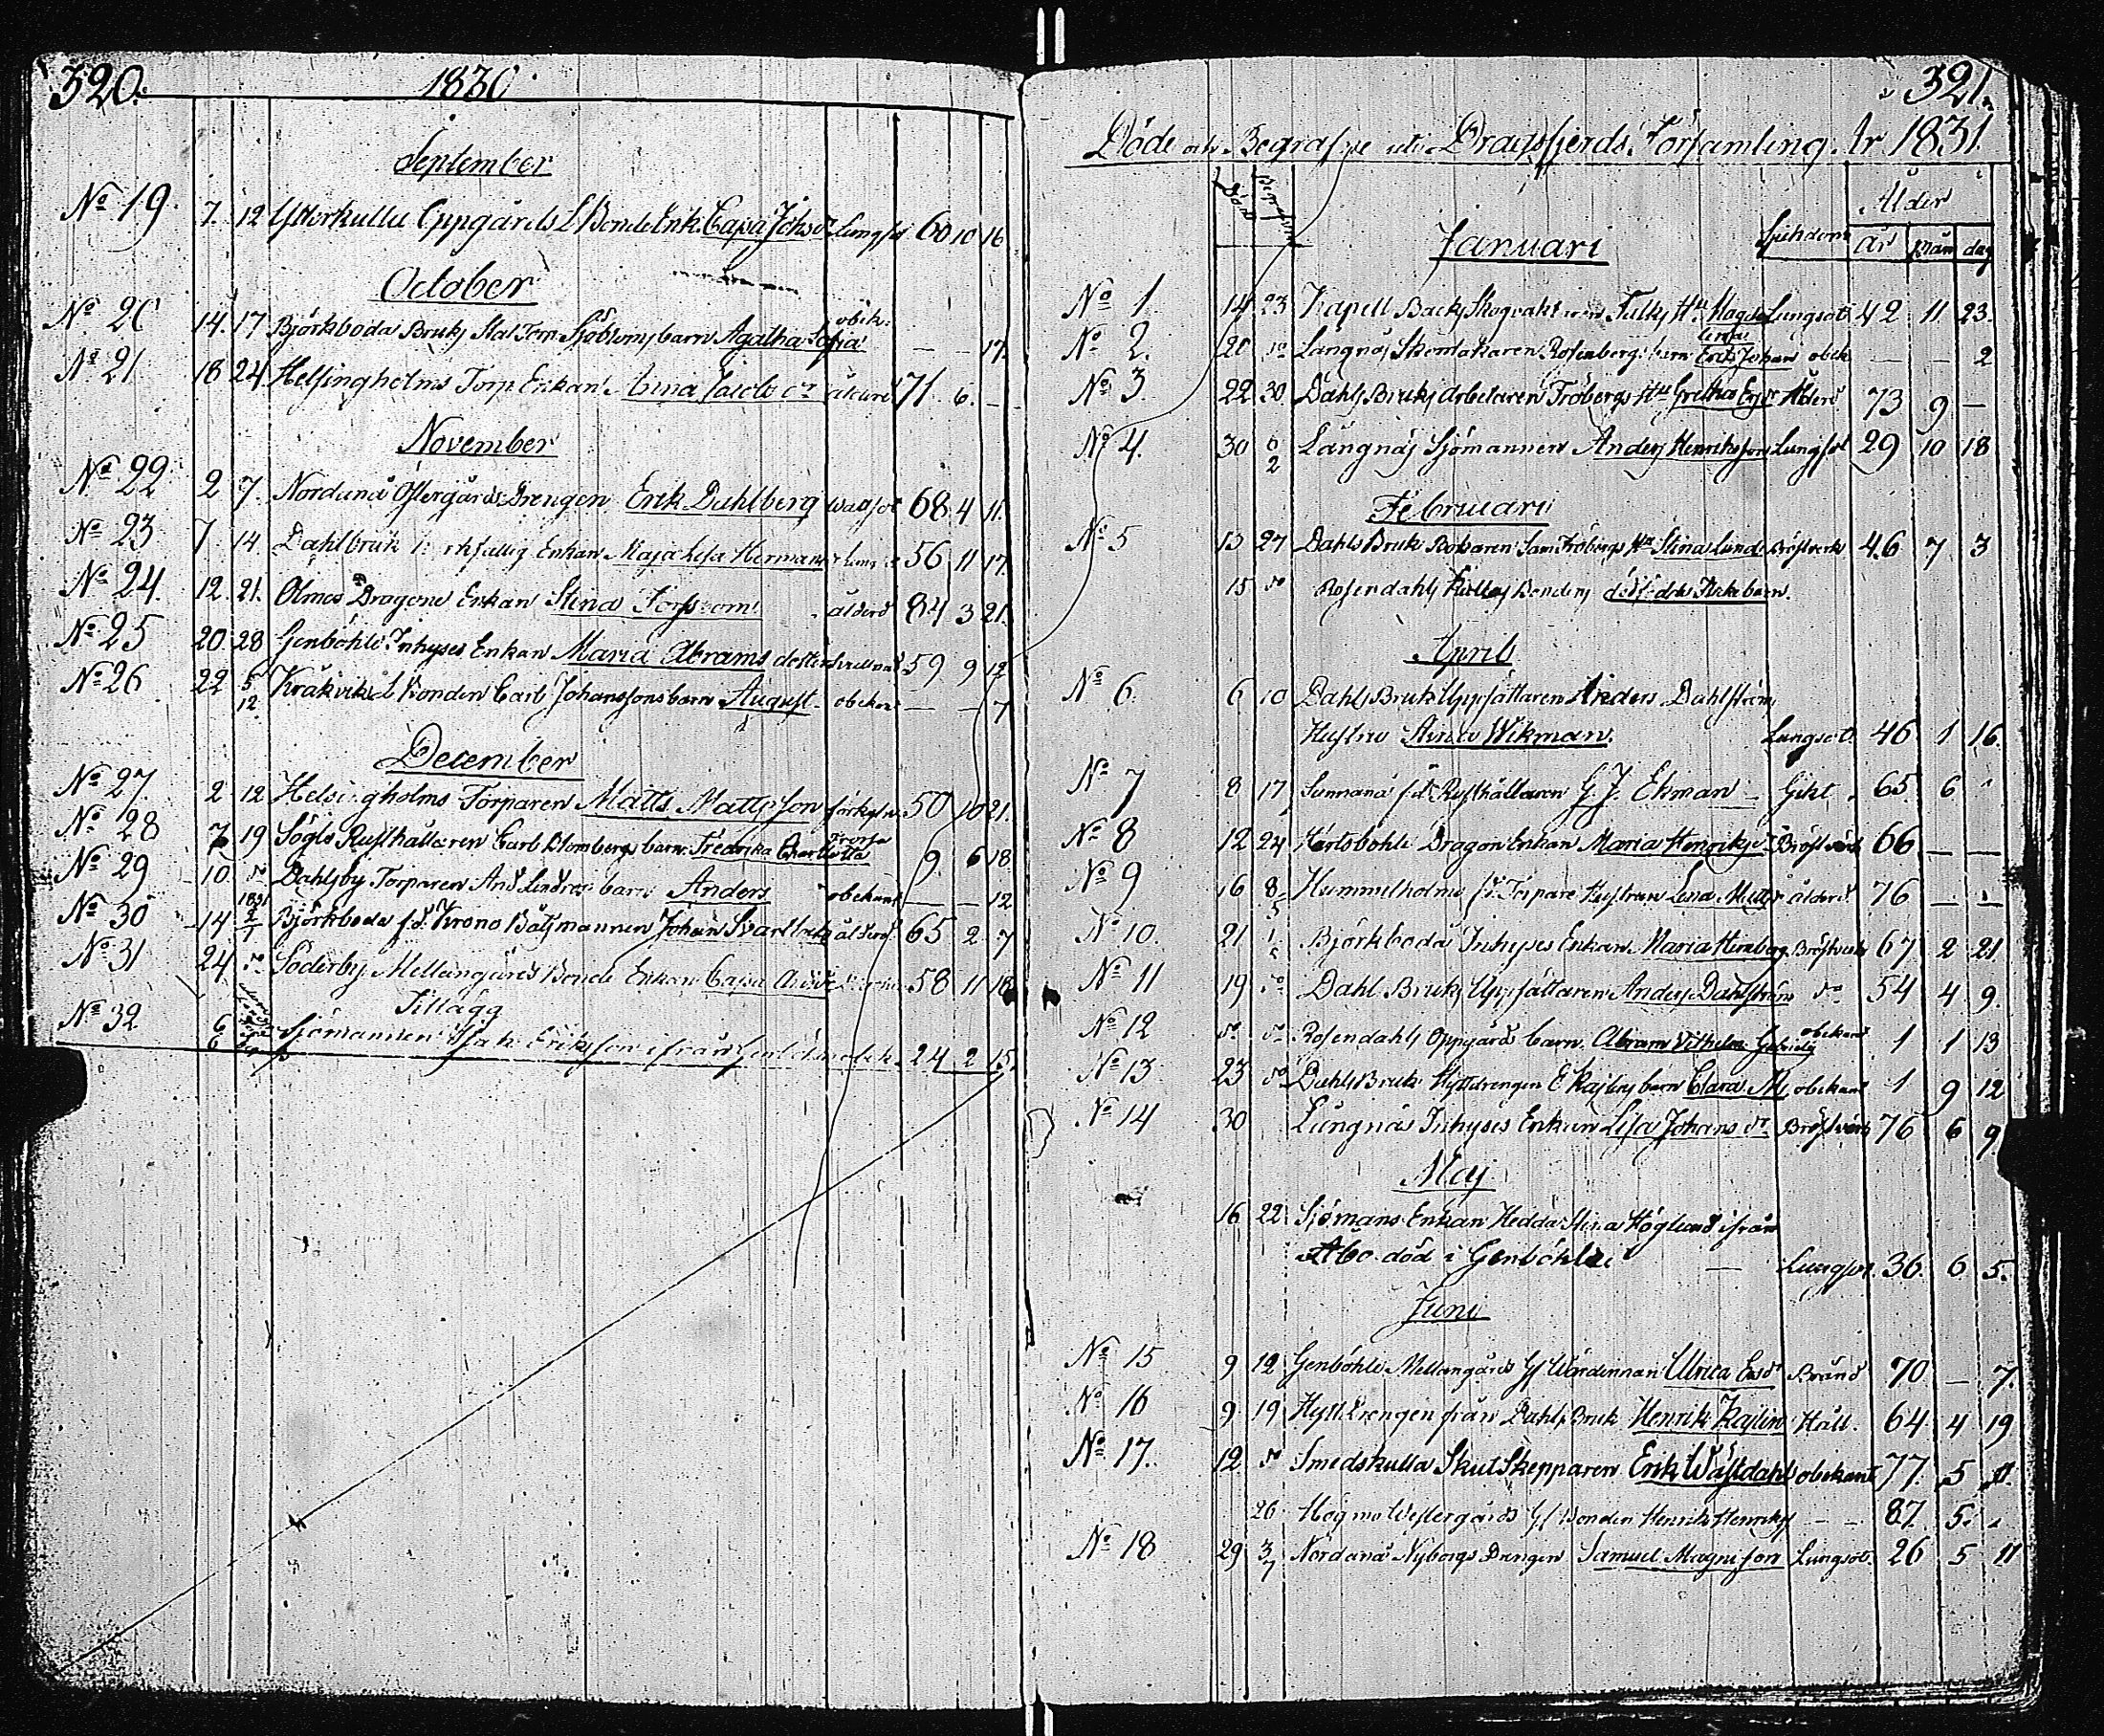 320.
1830.
September
No 19. 7. 12 Ytterkulla Oppgårds Bonde Enk. Cajsa Johs dr Lungsot 60 10 16
October
No 20 14. 17 Björkboda Bruks barn Agatha Sofia obek. — — 17.
No 21 18 24 Helsingholms Torp Enkan Anna Jacobs dr ålderd. 71. 6. —
November
No 22 2 7. Nordanå Östergårds Drengen Erik Dahlberg 68 4 11.
No 23 7. 14. Dahlbruk Enkan Maja Lisa Hermans 56 11 17.
No 24. 12. 21. Ölmos Dragone Enkan Stina ålderd 84 3 21.
No 25 20. 28 Genböhle Inhyses Enkan Maria Abrams dotter 59 9 12
No 26 22 5/12. Kråkvik Bonden Carl Johanssons barn August obekant — — 7
December
No 27 2 12 Helsingholms Torparen Matts Mattsson förkyln. 50 10 21.
No 28 7 19 Sögls Rusthållaren Carl Blombergs barn Fredrika Charlotta 9. 6 18
No 29 10. do Dahlsby Torparen And. Lindros barn Anders obekant — — 12
No 30 14 1831 2/1 Björkboda f.d. Krono Båtsmannen Johan Svartbäck ålderd. 65 2 7
No 31 24 do Söderby Mellangårds Bonde Enkan Cajsa 58 11 18
Tillägg
No 32 6/6 Sjömannen Isak Eriksson ifrån 24 2 15.
321.
Döde och Begrafne uti Dragsfjerds Församling År 1831.
Död Begrafne Ålder
Januari Sjukdom År Mån dag
No 1 14 23 Kapell Backs Lungsot 42 11 23.
No 2. 20 do Långnäs Skomakaren Rosenbergs barn Erik Johan obek — — 2
No 3 22 30 Dahls Bruks Arbetaren Fröbergs Hu Gretha Ersdr Ålderd 73 9 —
No 4. 30 6/2 Långnäs Sjömannen Anders Henriksson Lungsot 29 10 18
Februari
No 5 13 27 Dahls Bruk Fröbergs Hu Stina Lund Bröstverk 46 7 3
15 do Rosendahls Kullas Bondens dödfödde Flickebarn.
April
No 6. 6 10 Dahls Bruk Uppsättaren Anders Dahlström
Hustru Stina Wikman. Lungsot. 46 1 16.
No 7 8 17 Sunnanå f.d. Rusthållaren G J. Ekman — Gikt 65. 6.
No 8 12 24 Hertsböhle Dragon Enkan Maria Henriks dr Bröstvärk 66 — —
No 9 16 8/5 Hummelholms f.d. Torpare Hustrun Lena Mattsdr ålderd. 76 — —
No 10. 21 1/5 Björkboda Inhyses Enkan Maria Bröstverk 67 2 21
No 11 19 do Dahls Bruks Uppsättaren Anders Dahlström do 54 4 9.
No 12 do do Rosendahls Oppgårds barn Abram Vilhelm Gabriels obekant 1 1 13
No 13 23 do Dahls Bruk Hyttdrengen E Kajlins barn Clara M. obekant 1 9 12
No 14 30 Långnäs Inhyses Enkan Lisa Johans dr. Bröstvärk 76 6 9.
Maj
16 22 Sjömans Enkan Hedda Stina Höglund ifrån
Åbo död i Genböhle — Lungsot. 36. 6 5.
Juni
No 15 9 12 Genböhle Mellangårds Gl Värdinnan Ulrica Ersdr Brånd 70 — 7.
No 16 9 19 Hyttdrengen från Dahls Bruk Henrik Kajlin Håll. 64 4 19
No 17. 12 do Smedskulla Skut Skepparen Erik Wästdahl obekant 77. 5 11.
26 Högmo Westergårds Gl Bonden Henrik Henriks — — 87. 5.
No 18 29 3/7 Nordanå Nyborgs Drengen Samuel Magnusson Lungsot. 26 5 11